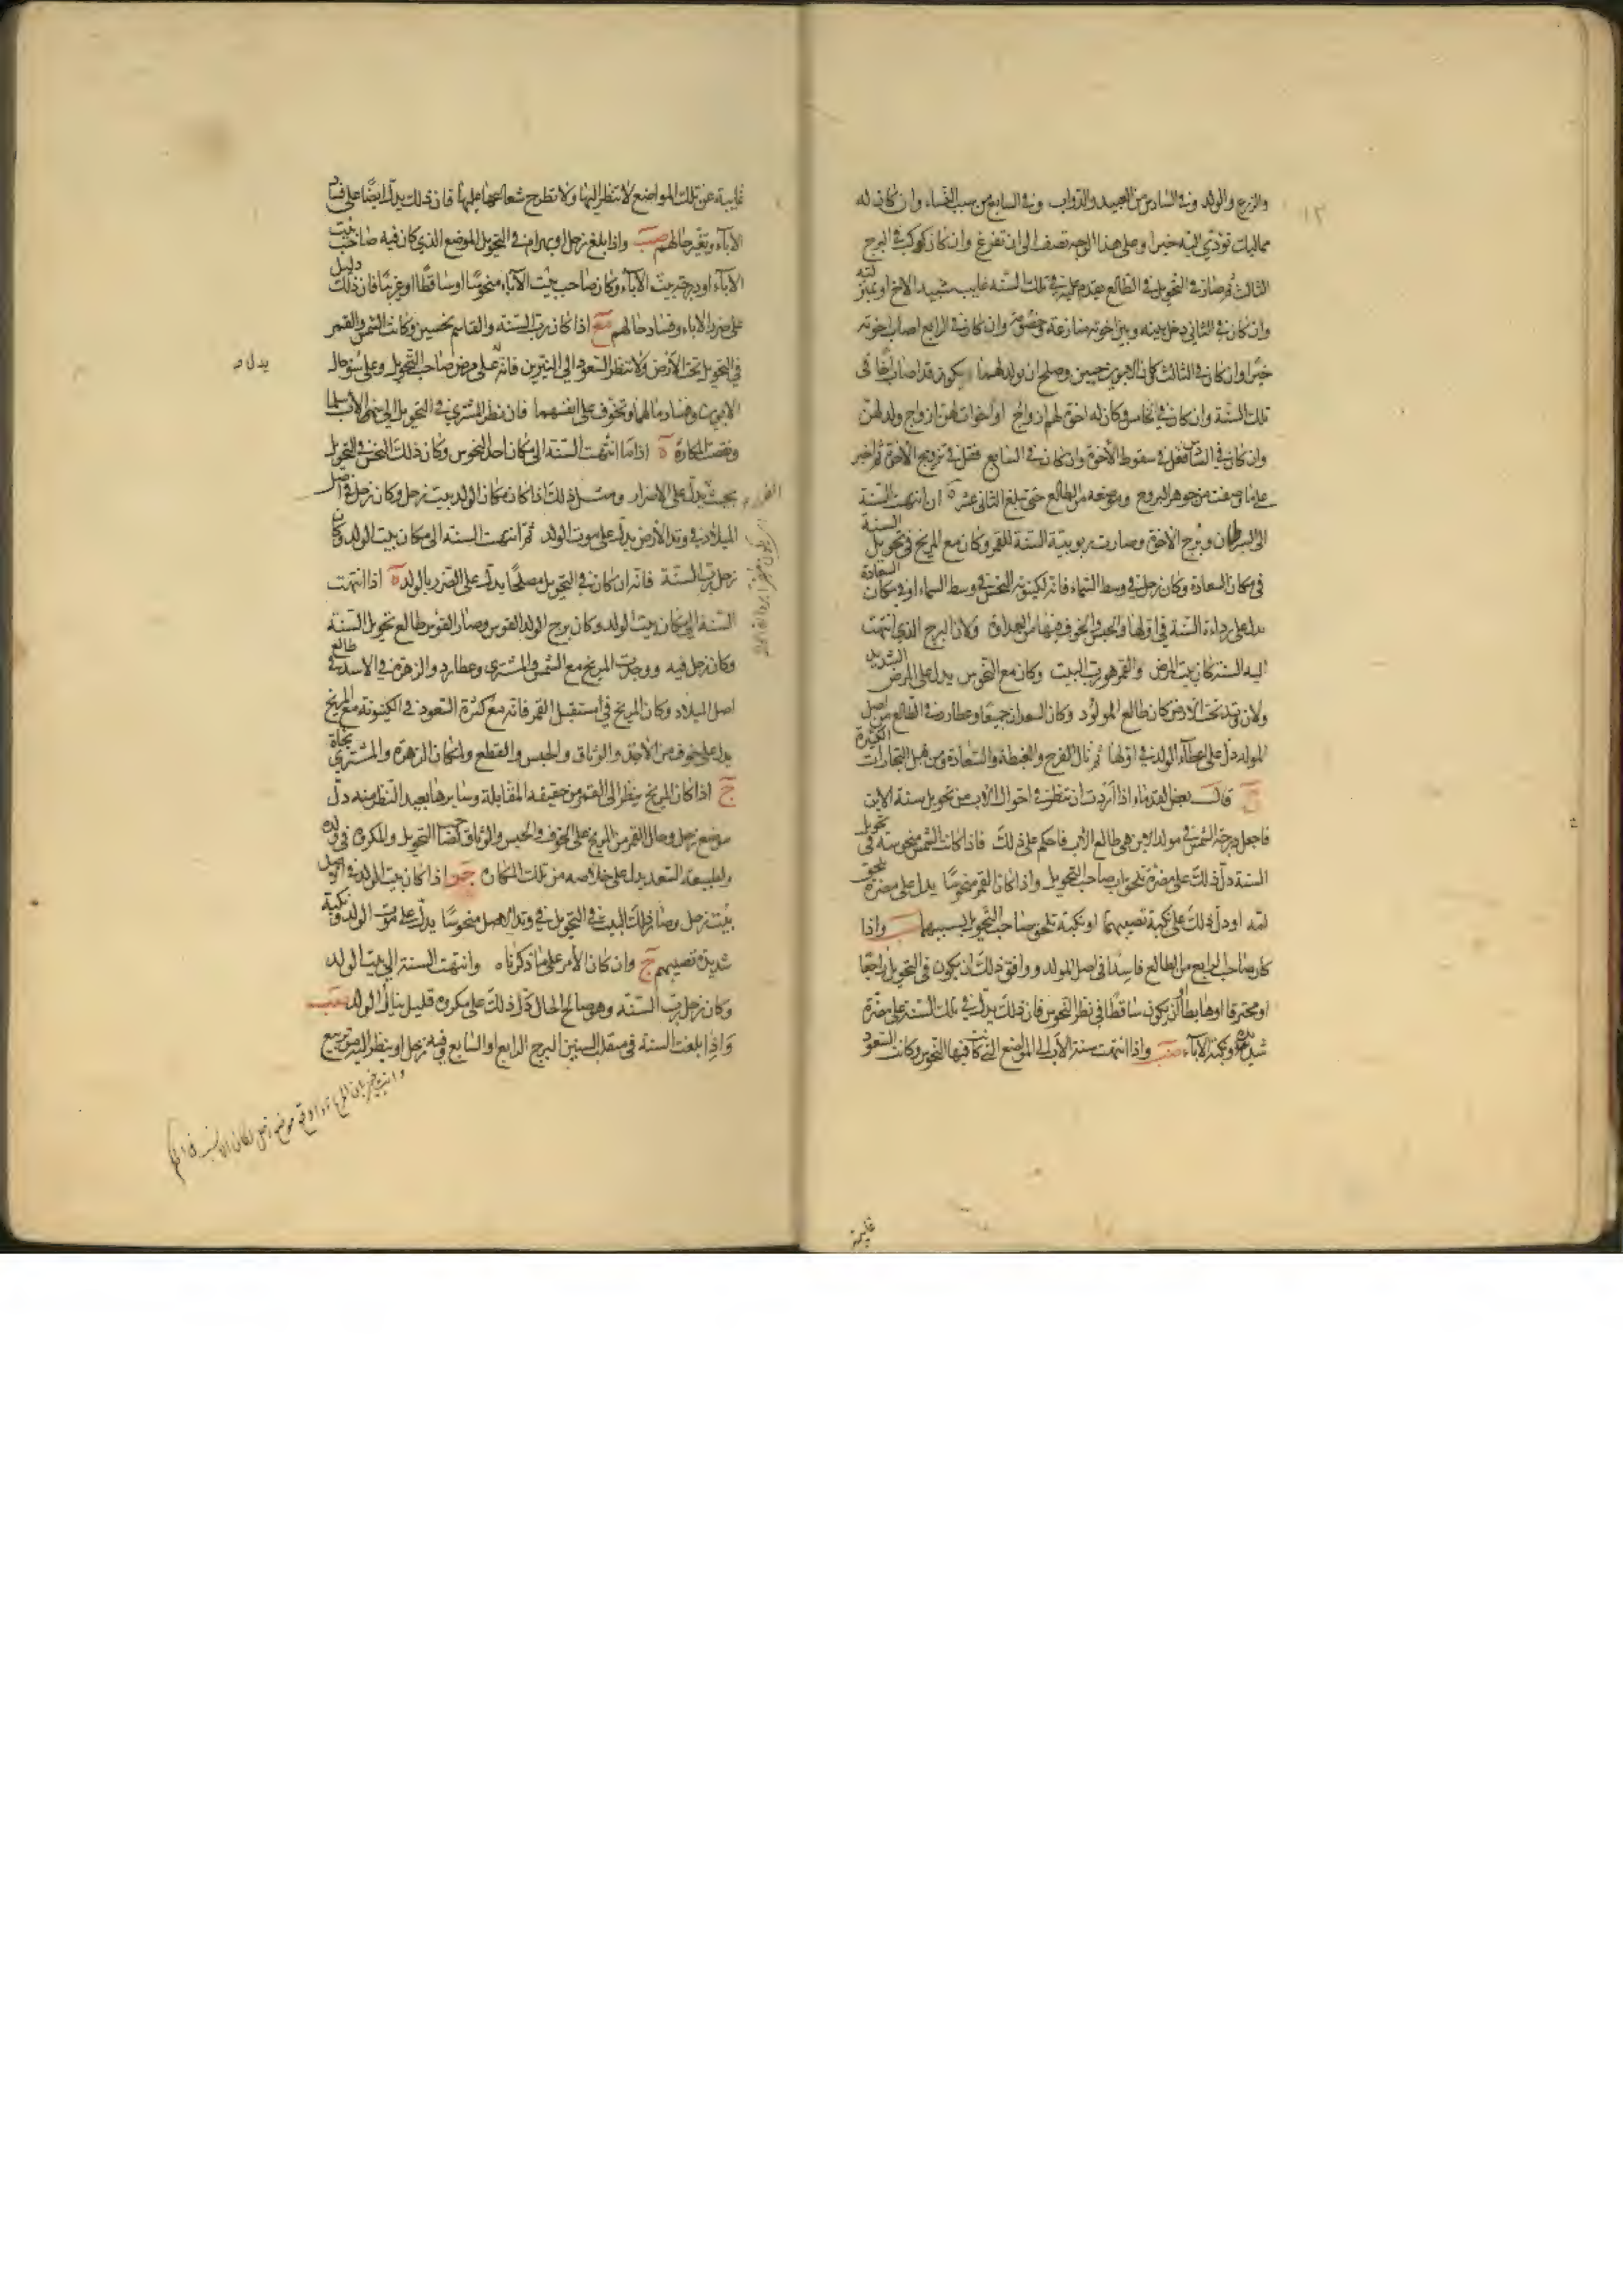 ١٢
والزرع والولد وفي السادس من العبيد والدواب وفي السابع من سبب النساء وان كان له
مماليك تودي اليه خيرا وعلى هذا الوجه تصف الى ان تفرغ وان كان كوكب في البرج
الثالث ثم صار في التحويل في الطالع يقدم عليه في تلك السنه غايب شبيه الاخ او بمنزلته
وان كان في الثاني دخل بينه وبين اخوته منازعة وخصومة وان كان في الرابع اصاب اخوته
خيرا وان كان في الثالث كان الابوين حيين وصلح ان يولد لهما يكون قد اصاب اخا في
تلك السنة وان كان في الخامس وكان له اخوة لهم ازواج او اخوات لهن ازواج ولد لهن
وان كان في السادس فقل في سقوط الاخوة وان كان في السابع فقل في تزويج الاخوة ثم اخبر
على ما وصفت من جوهر البروج وموضعه من الطالع حتى تبلغ الثاني عشر ه ان انتهت السنة
الى السرطان وبرج الاخوة وصارت ربوبية السنة للقمر وكان مع المريخ في تحويل السنة
في مكان السعادة وكان زحل في وسط السماء فانه لكينونة النحس في وسط السماء او في مكان السعادة
يدل على رداءة السنة في اولها والحبس والخوف فيها من العداة ولان البرج الذي انتهت
اليه السنة كان بيت المرض والقمر هو رب البيت وكان مع النحوس يدل على المرض الشديد
ولان وتد تحت الارض كان طالع المولود وكان السعدان جميعا وعطارد في الطالع من اصل
المولد دل على اعطاء الولد في اولها ثم نال الفرح والغبطة والسعادة ومن قبل التجارات الكثيرة
ج قال بعض القدماء اذا اردت ان تنظر في احوال الاب من تحويل سنة الابن
فاجعل درجة الشمس في مولد الابن هي طالع الاب فاحكم على ذلك فاذا كانت الشمس منحوسة في تحويل
السنة دل ذلك على مضرة تلحق اب صاحب التحويل واذا كان القمر منحوسا يدل على مضرة تلحق
امه او دل ذلك على نكبة تصيبهما او نكبة تلحق صاحب التحويل بسببهما واذا
كان صاحب الرابع من الطالع فاسدا في اصل المولد ووافق ذلك ان يكون في التحويل راجعا
او محترقا او هابطا او ان يكون ساقطا في نظر النحوس فان ذلك يدل في تلك السنة على مضرة
شديدة ونكبة الاباء واذا انتهت سنة الاب الى المواضع التي كانت فيها النحوس وكانت السعود
غايبة
غايبة عن تلك المواضع لا تنظر اليها ولا تطرح شعاعها عليها فان ذلك يدل ايضا على فساد
الاباء وتغير حالهم واذا بلغ زحل او بهرام في التحويل الموضع الذي كان فيه صاحب بيت
الاباء او درجة بيت الاباء وكان صاحب بيت الاباء منحوسا او ساقطا او غريبا فان ذلك دليل
على ضرر الاباء وفساد حالهم اذا كان رب السنة والقاسم نحسين وكانت الشمس والقمر
في التحويل تحت الارض ولا تنظر السعود الى النيرين فانه على مرض صاحب التحويل وعلى سوء حال
يدل
الابوين وفساد مالهما وتخوف على انفسهما فان نظر المشتري في التحويل اليهما سلما
ونقصت المكاره ه اذا ما انتهت السنة الى مكان احد النحوس وكان ذلك النحس في التحويل
بحيث يدل على الاضرار ومثل ذلك اذا كان مكان الولد بيت زحل وكان زحل في اصل
الميلاد في وتد الارض يدل على موت الولد ثم انتهت السنة الى مكان بيت الولد وكان
زحل رب السنة فانه ان كان في التحويل مصلحا يدل على الضرر بالولد ه اذا انتهت
السنة الى مكان بيت الولد وكان برج الولد القوس وصار القوس طالع تحويل السنة
وكان زحل فيه ووجدت المريخ مع الشمس والمشتري وعطارد والزهرة في الاسد في طالع
اصل الميلاد وكان المريخ في استقبال القمر فانه مع كثرة السعود في الكينونة مع المريخ
يدل على خوف من الاخذ والوثاق والحبس والقطع ولمكان الزهرة والمشتري نجاة
ج اذا كان المريخ ينظر الى القمر من حقيقة المقابلة وسايرها بعيد النظر منه دل
موضع زحل وحال القمر من المريخ على الخوف والحبس والوثاق التحويل والمكروه في ولده
ولطبيعة السعد يدل على خلاصه من تلك المكان اذا كان بيت الولد في الاصل
بيت زحل وصار ذلك البيت في التحويل في وتد زحل منحوسا يدل على موت الولد ونكبة
شديدة تصيبهم ج وان كان الامر على ما ذكرناه وانتهت السنة الى بيت الولد
وكان زحل رب السنة وهو صالح الحال دل ذلك على مكروه قليل ينال الولد
واذا بلغت السنة في منقلب السنين البرج الرابع او السابع وفيه زحل او ينظر اليه من تربيع